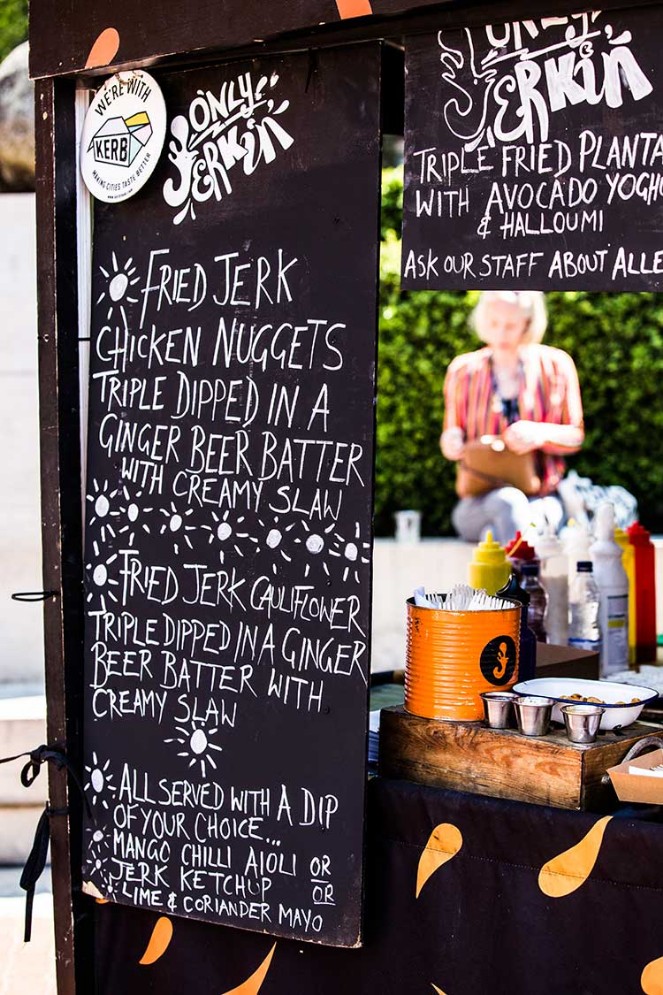 WE'RE WITH
KERB
MAKING CITIES TASTE BETTER
ONLY
JERKIN'
FRIED JERK
CHICKEN NUGGETS
TRIPLE DIPPED IN A
GINGER BEER BATTER
WITH CREAMY SLAW
FRIED JERK CAULIFLOWER
TRIPLE DIPPED IN A GINGER
BEER BATTER WITH
CREAMY SLAW
ALL SERVED WITH A DIP
OF YOUR CHOICE...
MANGO CHILLI AIOLI OR
JERK KETCHUP OR
LIME & CORIANDER MAYO
ONLY
JERKIN
TRIPLE FRIED PLANTA
WITH AVOCADO YOGH
& HALLOUMI
ASK OUR STAFF ABOUT ALLE